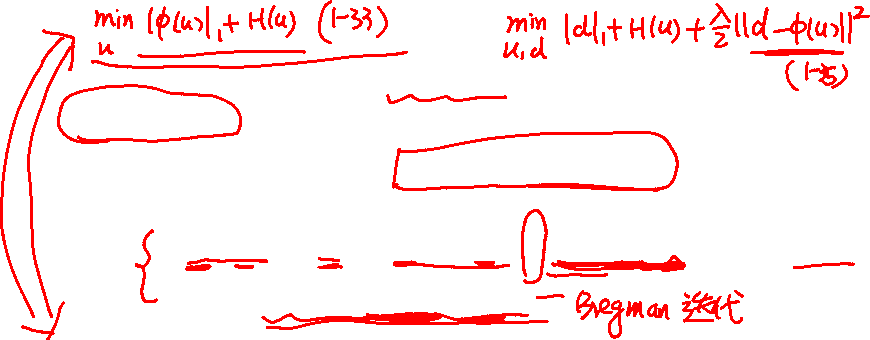 min_u |ϕ(u)|₁ + H(u) (1-33)
min_{u,d} |d|₁ + H(u) + λ/2 ||d - ϕ(u)||²
(1-35)
Bregman 迭代